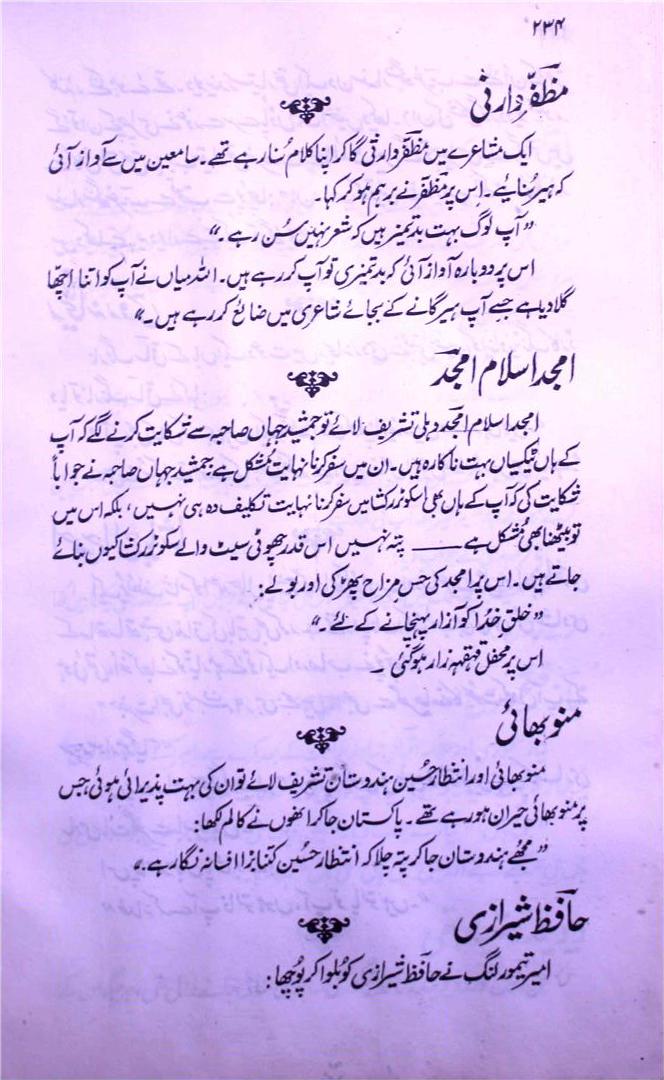 ۲۳۴
مظفر وارثی
ایک مشاعرے میں مظفر وارثی گا کر اپنا کلام سُنا رہے تھے۔ سامعین میں سے آواز آئی
کہ ہیر سُنایے۔ اس پر مظفر نے برہم ہو کر کہا۔
”آپ لوگ بہت بدتمیز ہیں کہ شعر نہیں سُن رہے۔“
اس پر دوبارہ آواز آئی کہ بدتمیزی تو آپ کر رہے ہیں۔ اللہ میاں نے آپ کو اتنا اچھا
گلا دیا ہے جسے آپ ہیر گانے کے بجائے شاعری میں ضائع کر رہے ہیں۔“
امجد اسلام امجد
امجد اسلام امجد دہلی تشریف لائے تو جمشید جہاں صاحبہ سے شکایت کرنے لگے کہ آپ
کے ہاں ٹیکسیاں بہت ناکارہ ہیں۔ ان میں سفر کرنا نہایت مُشکل ہے جمشید جہاں صاحبہ نے جواباً
شکایت کی کہ آپ کے ہاں بھی اسکوٹر رکشا میں سفر کرنا نہایت تکلیف دہ ہی نہیں، بلکہ اس میں
تو بیٹھنا بھی مُشکل ہے ـــــ پتہ نہیں اس قدر چھوٹی سیٹ والے سکوٹر رکشا کیوں بنائے
جاتے ہیں۔ اس پر امجد کی حس مزاح پھڑکی اور بولے:
”خلقِ خُدا کو آزار پہنچانے کے لئے۔“
اس پر محفل قہقہہ زار ہو گئی۔
منو بھائی
منو بھائی اور انتظار حسین ہندوستان تشریف لائے تو ان کی بہت پذیرائی ہوئی جس
پر منو بھائی حیران ہو رہے تھے۔ پاکستان جا کر انھوں نے کالم لکھا:
”مجھے ہندوستان جا کر پتہ چلا کہ انتظار حسین کتنا بڑا افسانہ نگار ہے۔“
حافظ شیرازی
امیر تیمور لنگ نے حافظ شیرازی کو بُلوا کر پوچھا: